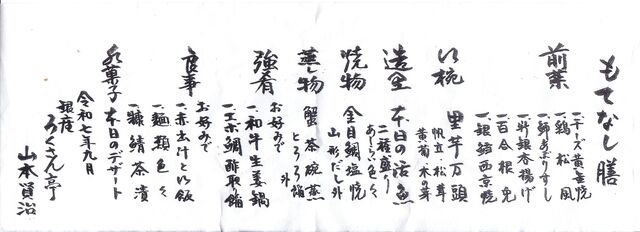 もてなし膳
前菜
一、チーズ黄金焼
一、鶏松風
一、鯵あぶりすし
一、新銀杏揚げ
一、百合根兎
一、銀鱈西京焼
口椀
里芋万頭
帆立・松茸
黄菊・木の芽
造里
本日の活魚
二種盛り
あしらい色々
焼物
金目鯛塩焼
山形だし外
蒸し物
蟹茶碗蒸
とろろ餡外
強肴
お好みで
一、和牛生姜鍋
一、エボ鯛酢取餡
食事
お好みで
一、赤玉汁と御飯
一、麺類色々
一、糠鯖茶漬
水菓子
本日のデザート
令和七年九月
銀座
ろくさん亭
山本賢治